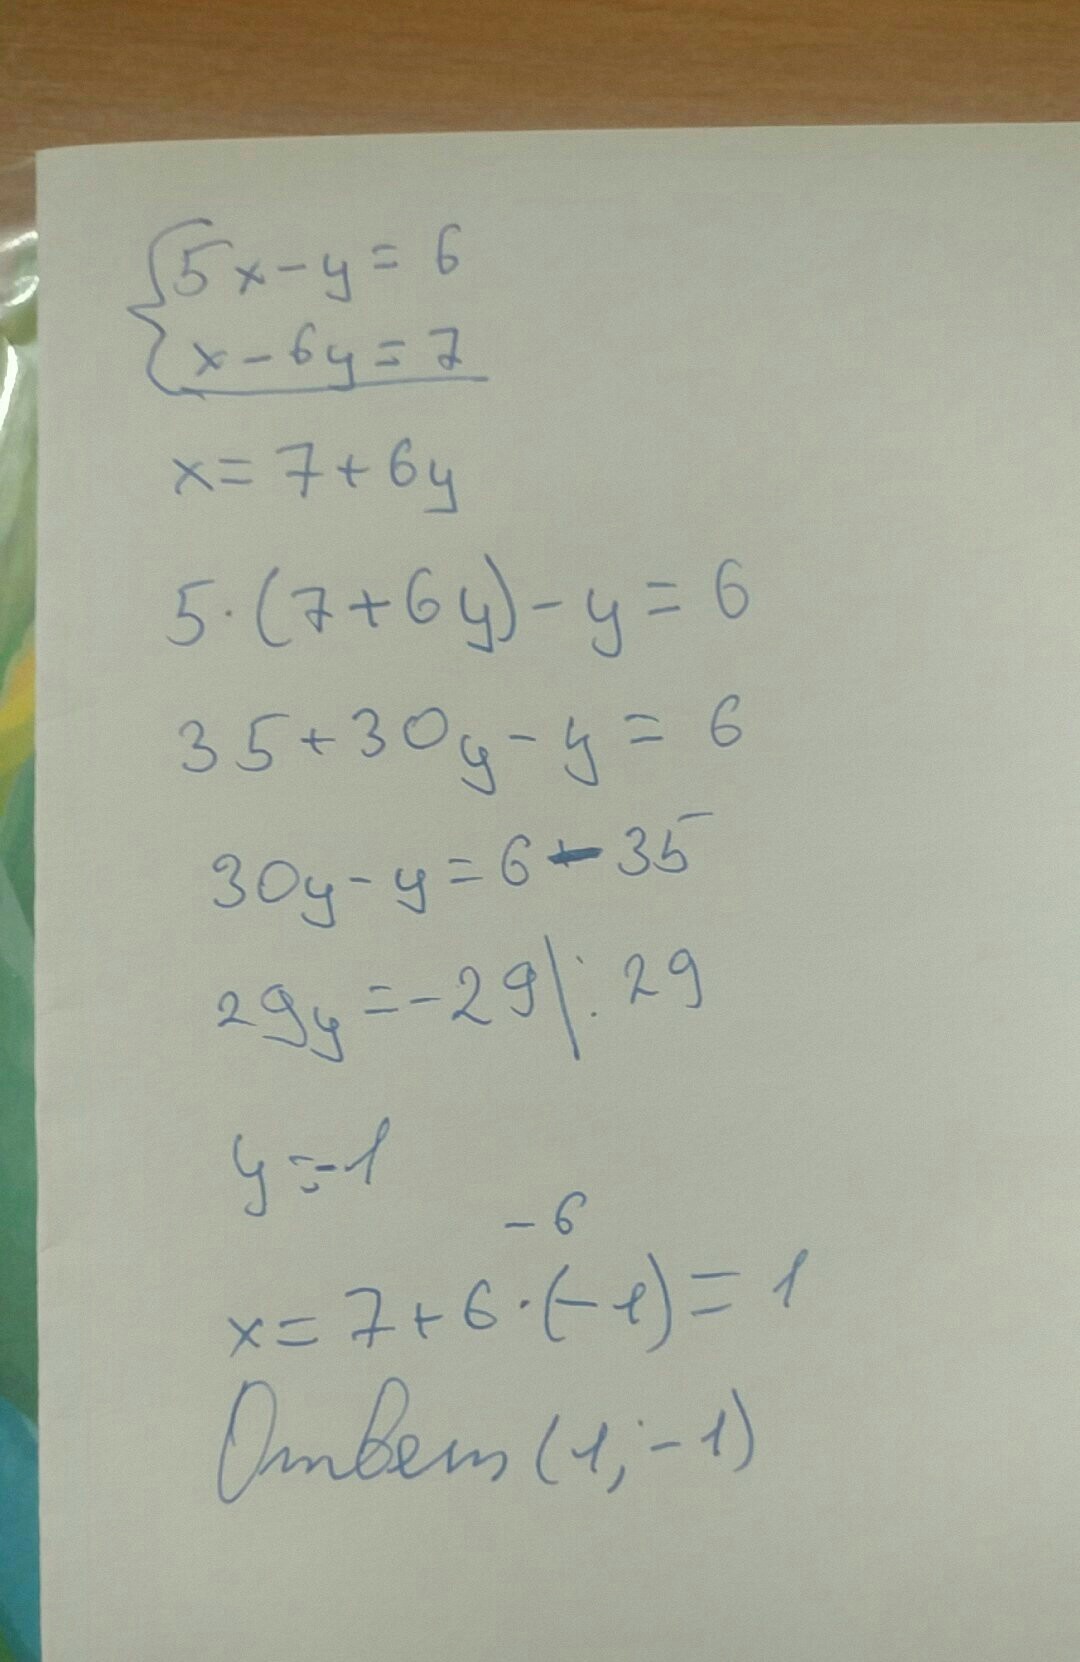 {5x-y=6
x-6y=7
x=7+6y
5·(7+6y)-y=6
35+30y-y=6
30y-y=6-35
29y=-29|:29
y=-1
-6
x=7+6·(-1)=1
Ответ (1;-1)